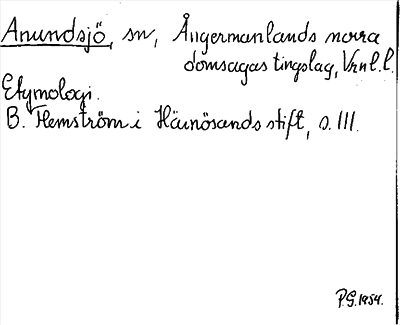 Anundsjö, sn, Ångermanlands norra
domsagas tingslag, Vrnl.l.
Etymologi.
B. Hemström i Härnösands stift, s. 111.
P.G. 1954.